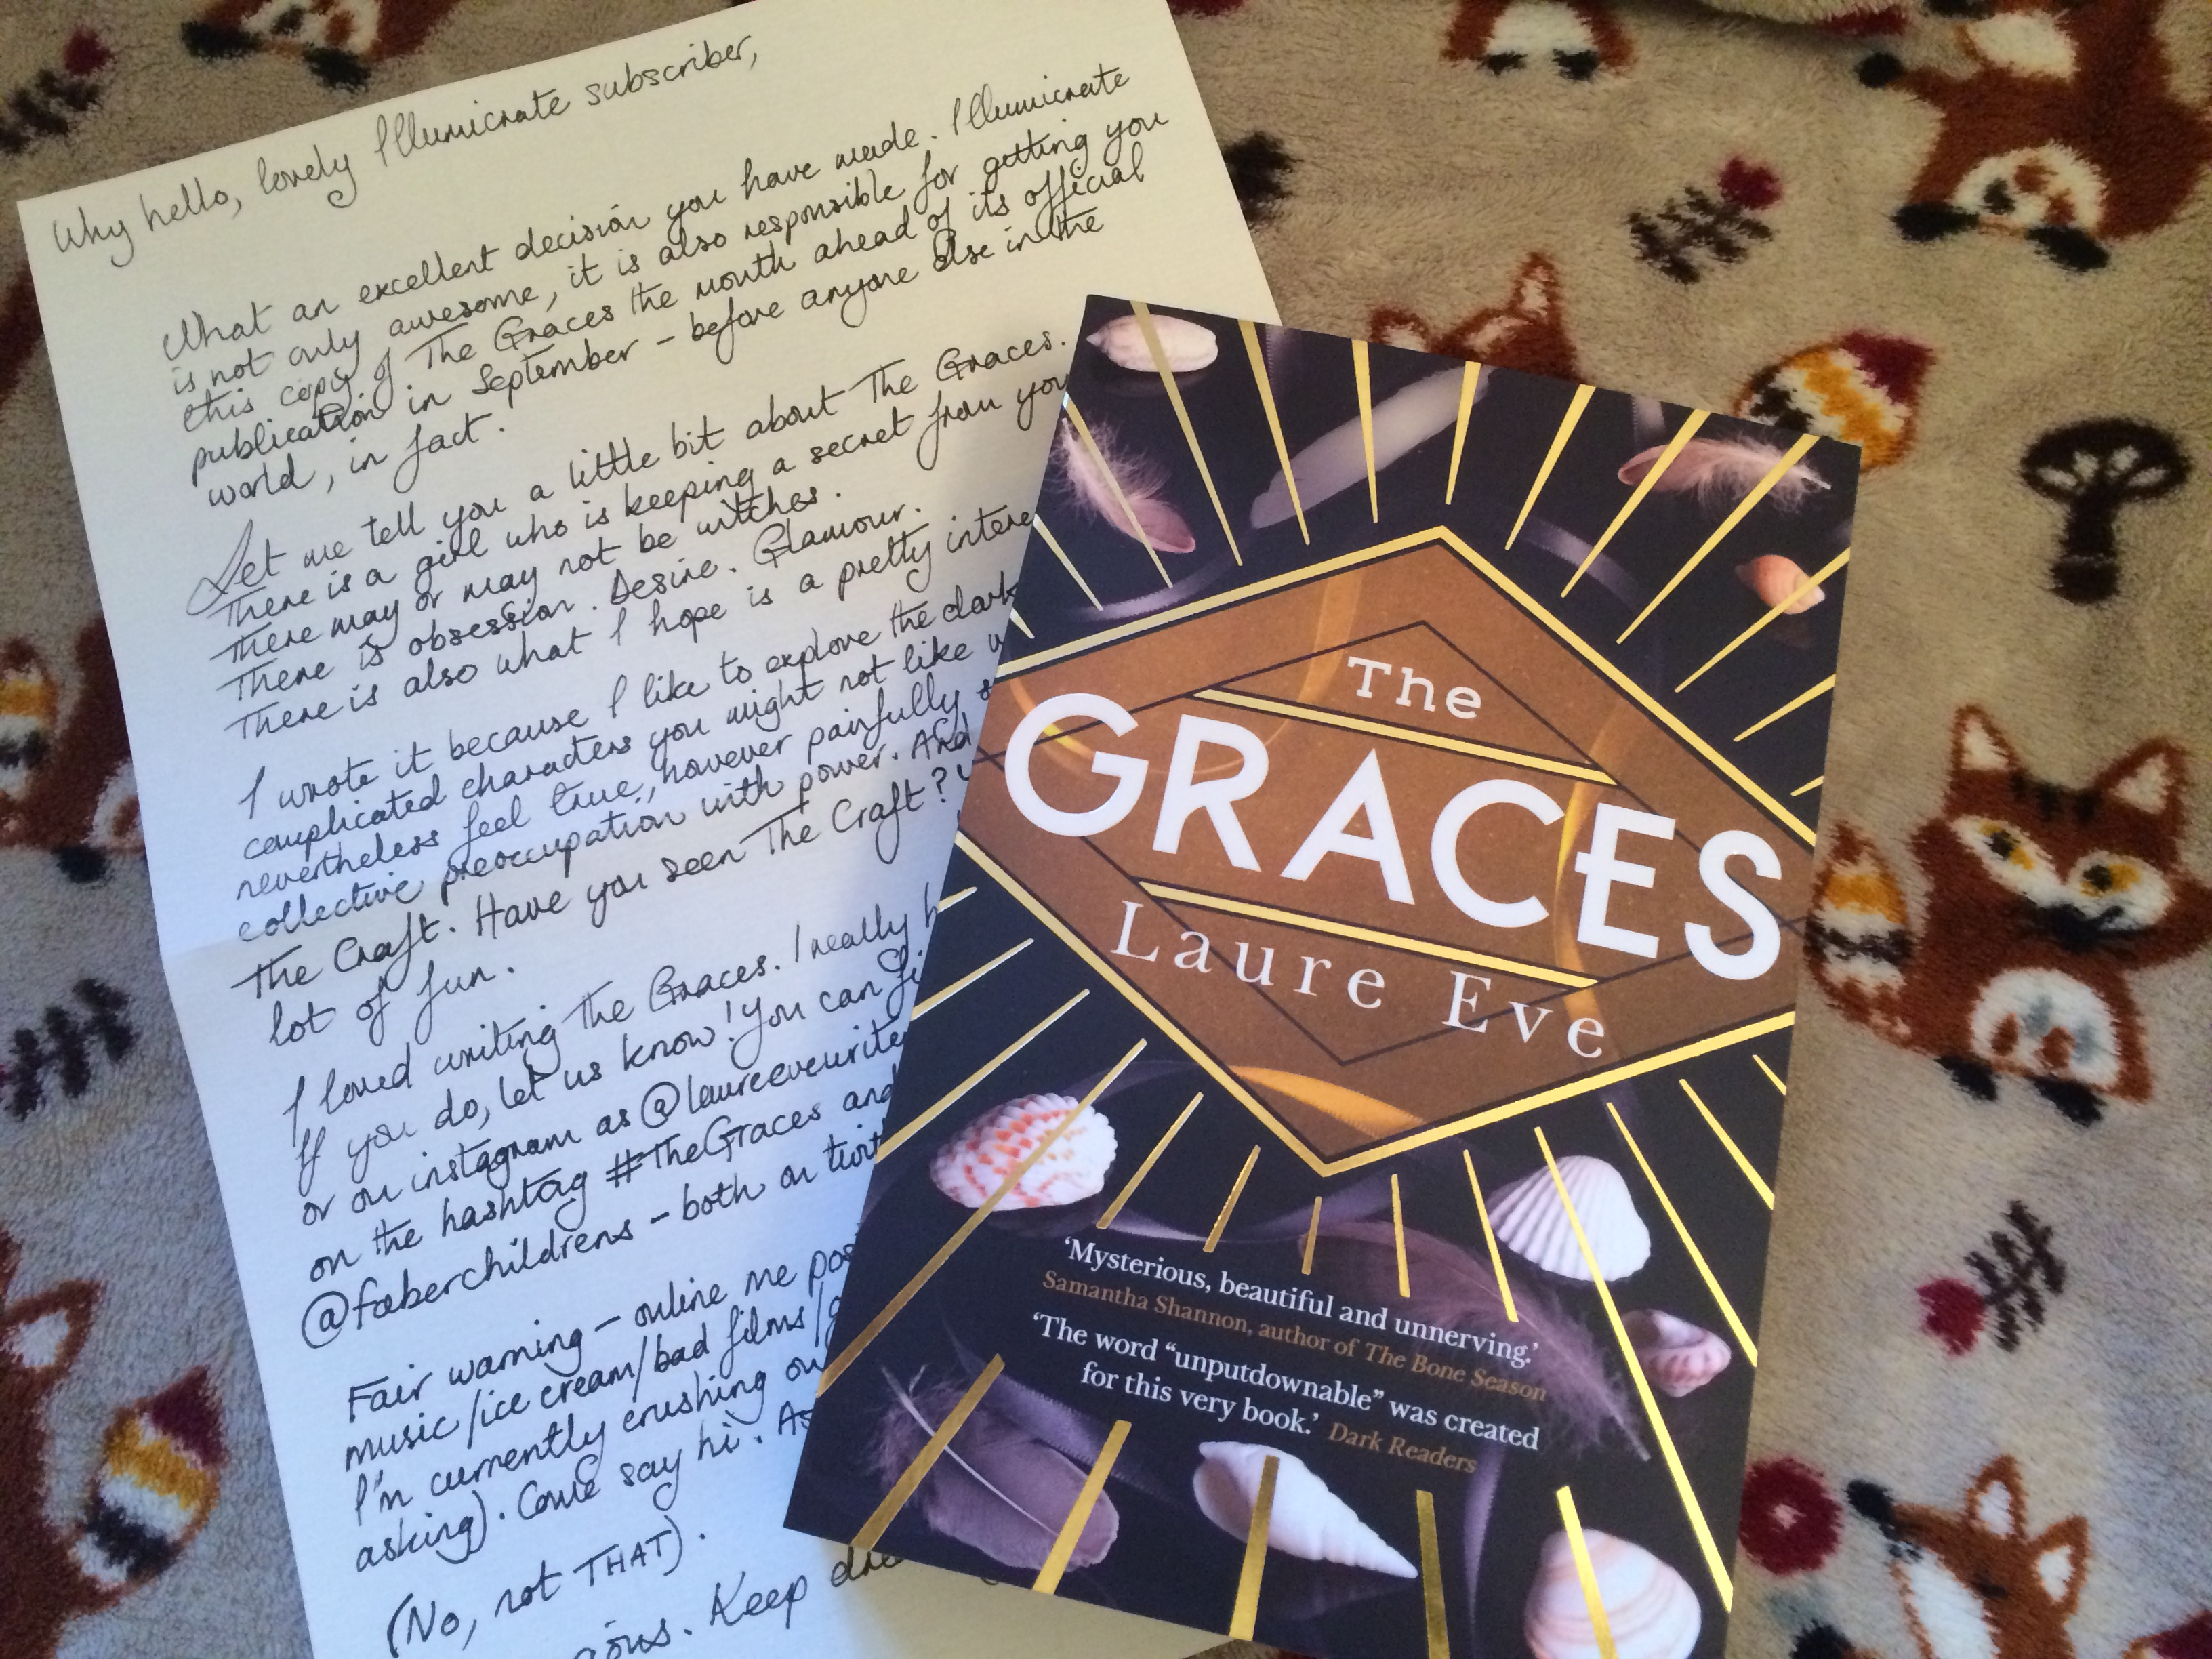 Why hello, lovely Illumicrate subscriber,
What an excellent decision you have made. Illumicrate
is not only awesome, it is also responsible for getting you
this copy of The Graces the month ahead of its official
publication in September – before anyone else in the
world, in fact.
Let me tell you a little bit about The Graces.
There is a girl who is keeping a secret from you
There may or may not be witches.
There is obsession. Desire. Glamour.
There is also what I hope is a pretty
I wrote it because I like to explore the dark
complicated characters you might not like
nevertheless feel true, however painfully
collective preoccupation with power. And
The Craft. Have you seen The Craft?
lot of fun.
I loved writing The Graces. I really
If you do, let us know! You can
or on instagram as @laureeve
on the hashtag #TheGraces and
@faberchildrens – both on
Fair warning – online me
music/ice cream/bad films/
I'm currently crushing
asking). Come say hi.
(No, not THAT).
Keep
The
GRACES
Laure Eve
'Mysterious, beautiful and unnerving.'
Samantha Shannon, author of The Bone Season
'The word "unputdownable" was created
for this very book.' Dark Readers